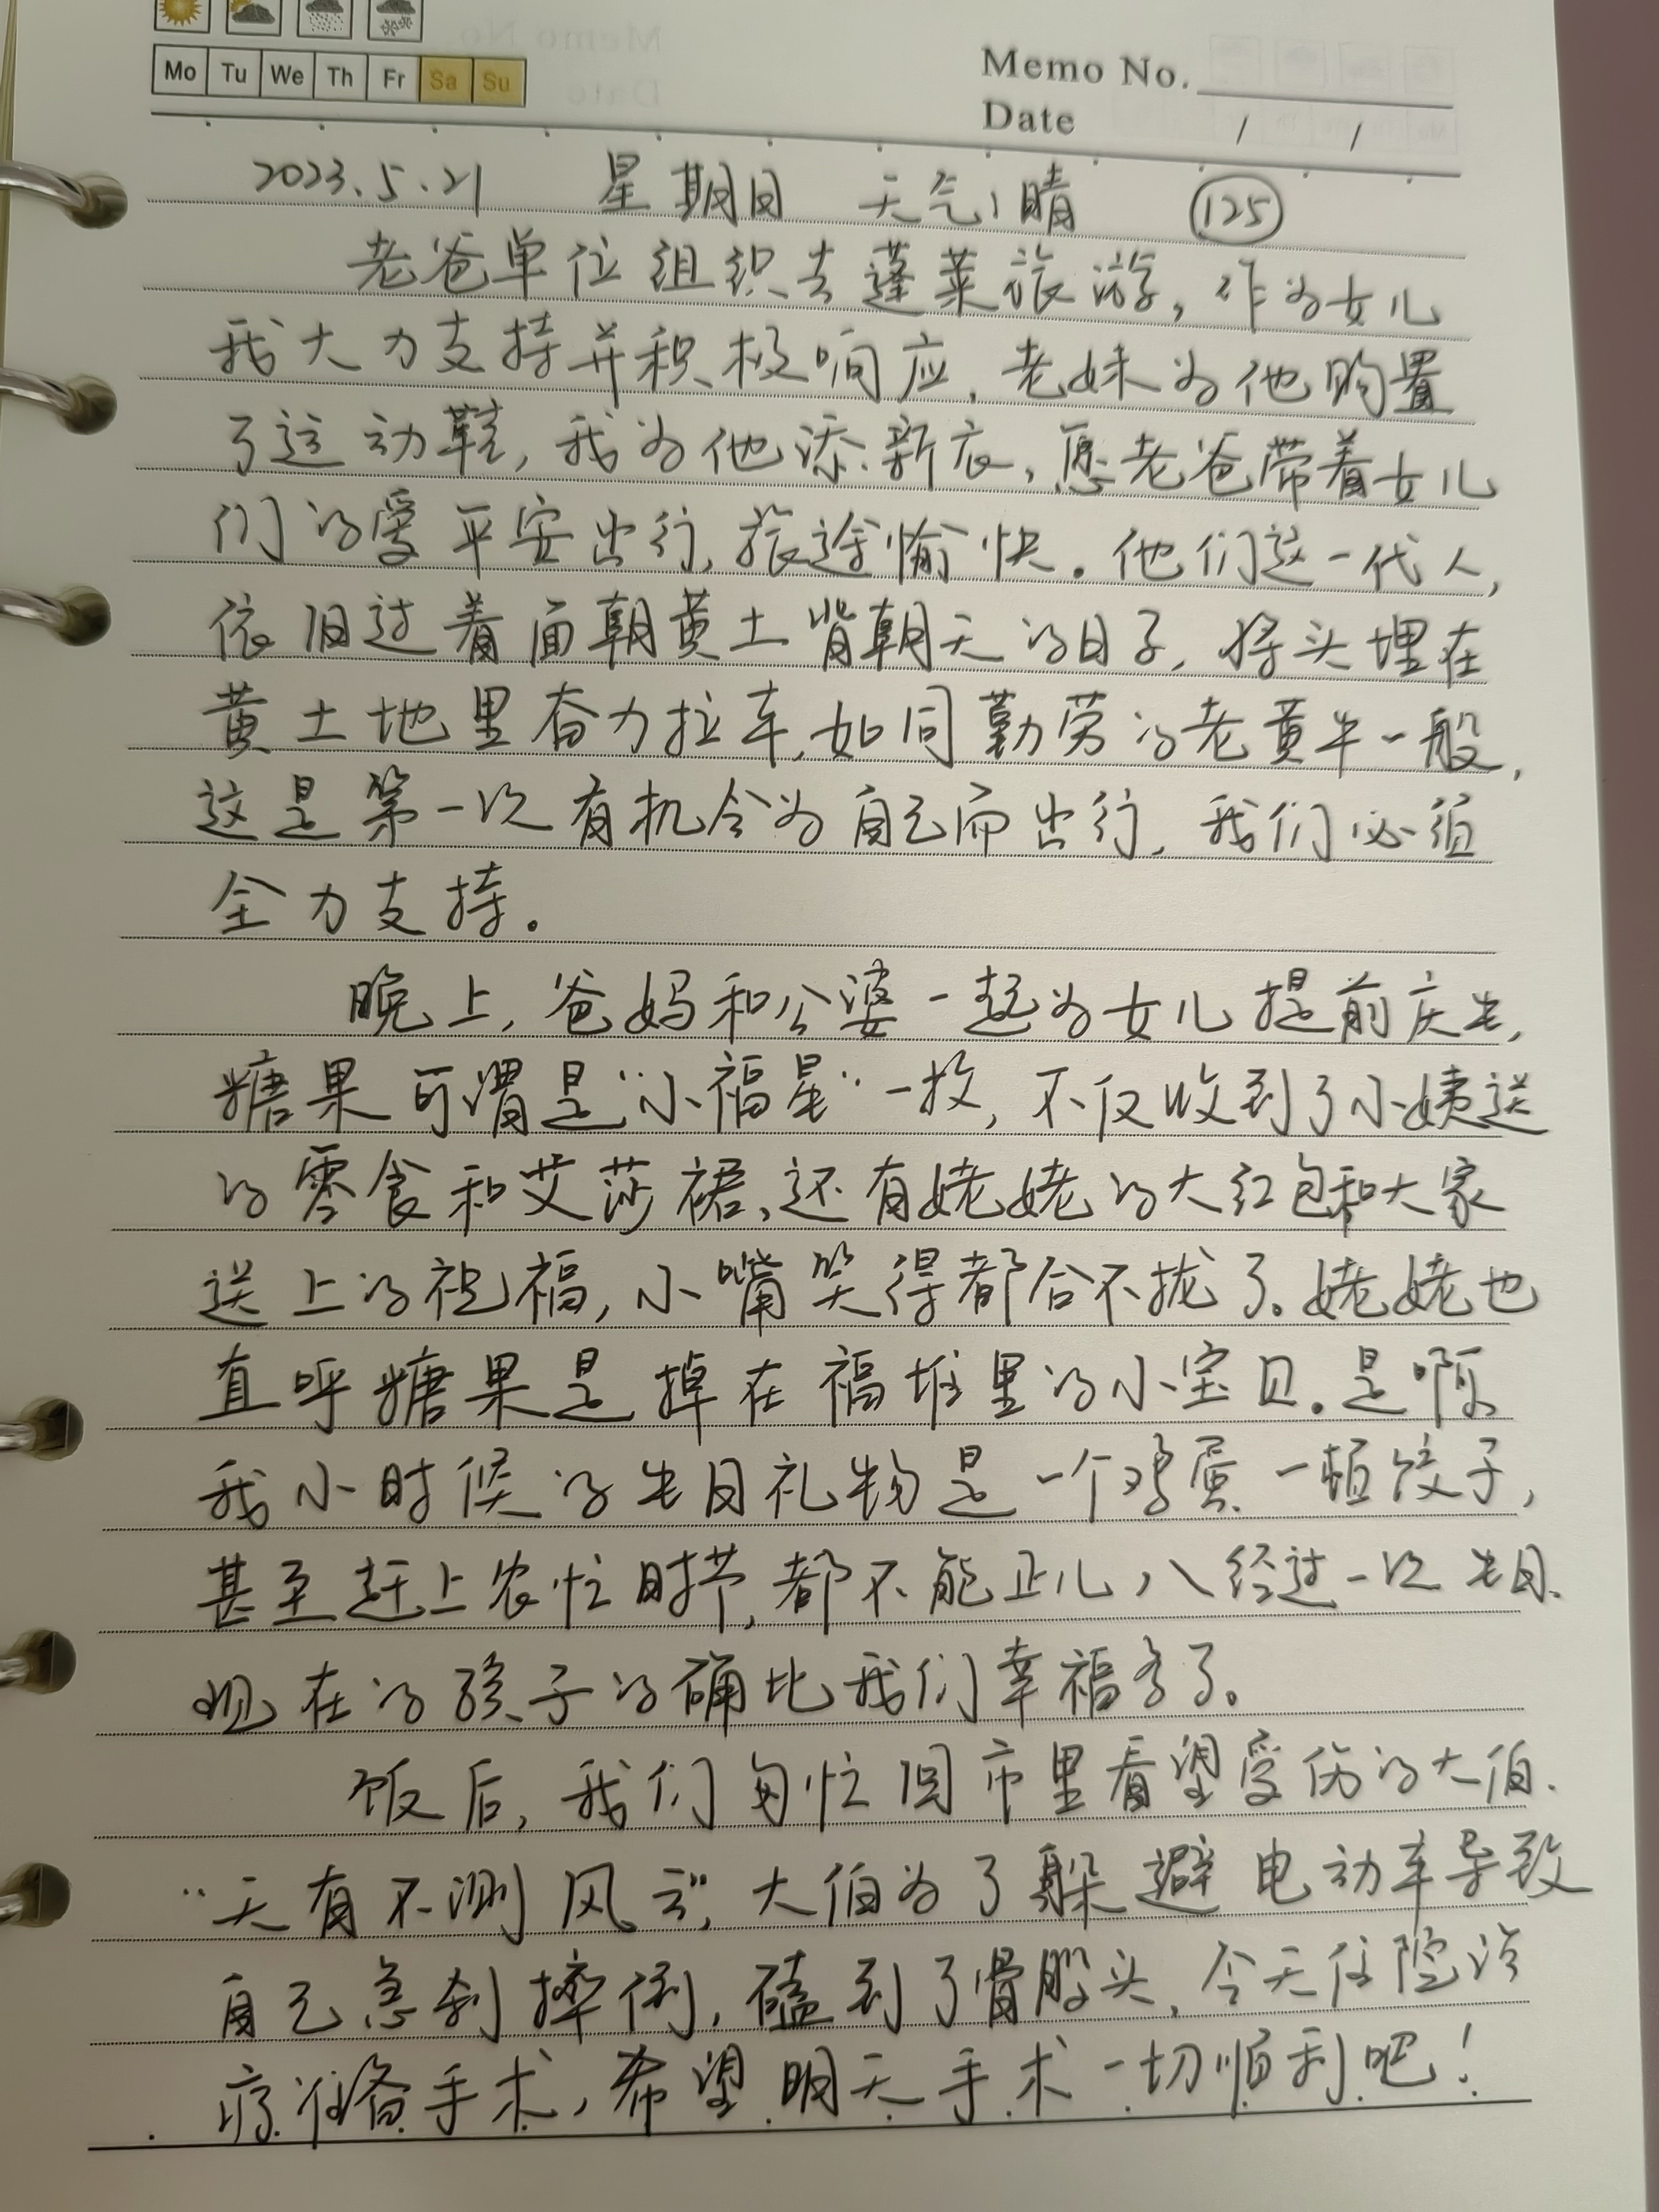 Mo Tu We Th Fr Sa Su
Memo No.
Date / /
2023.5.21 星期日 天气:晴 125
老爸单位组织去蓬莱旅游,作为女儿
我大力支持并积极响应,老妹为他购置
了运动鞋,我为他添新衣,愿老爸带着女儿
们的爱平安出行,旅途愉快。他们这一代人,
依旧过着面朝黄土背朝天的日子,将头埋在
黄土地里奋力拉车,如同勤劳的老黄牛一般,
这是第一次有机会为自己而出行,我们必须
全力支持。
晚上,爸妈和公婆一起为女儿提前庆生,
糖果可谓是“小福星”一枚,不仅收到了小姨送
的零食和艾莎裙,还有姥姥的大红包和大家
送上的祝福,小嘴笑得都合不拢了。姥姥也
直呼糖果是掉在福堆里的小宝贝。是啊
我小时候的生日礼物是一个鸡蛋一顿饺子,
甚至赶上农忙时节,都不能正儿八经过一次生日.
现在的孩子的确比我们幸福多了。
饭后,我们匆忙回市里看望受伤的大伯.
“天有不测风云”,大伯为了躲避电动车导致
自己急刹摔倒,磕到了骨股头,今天住院治
疗准备手术,希望明天手术一切顺利吧!